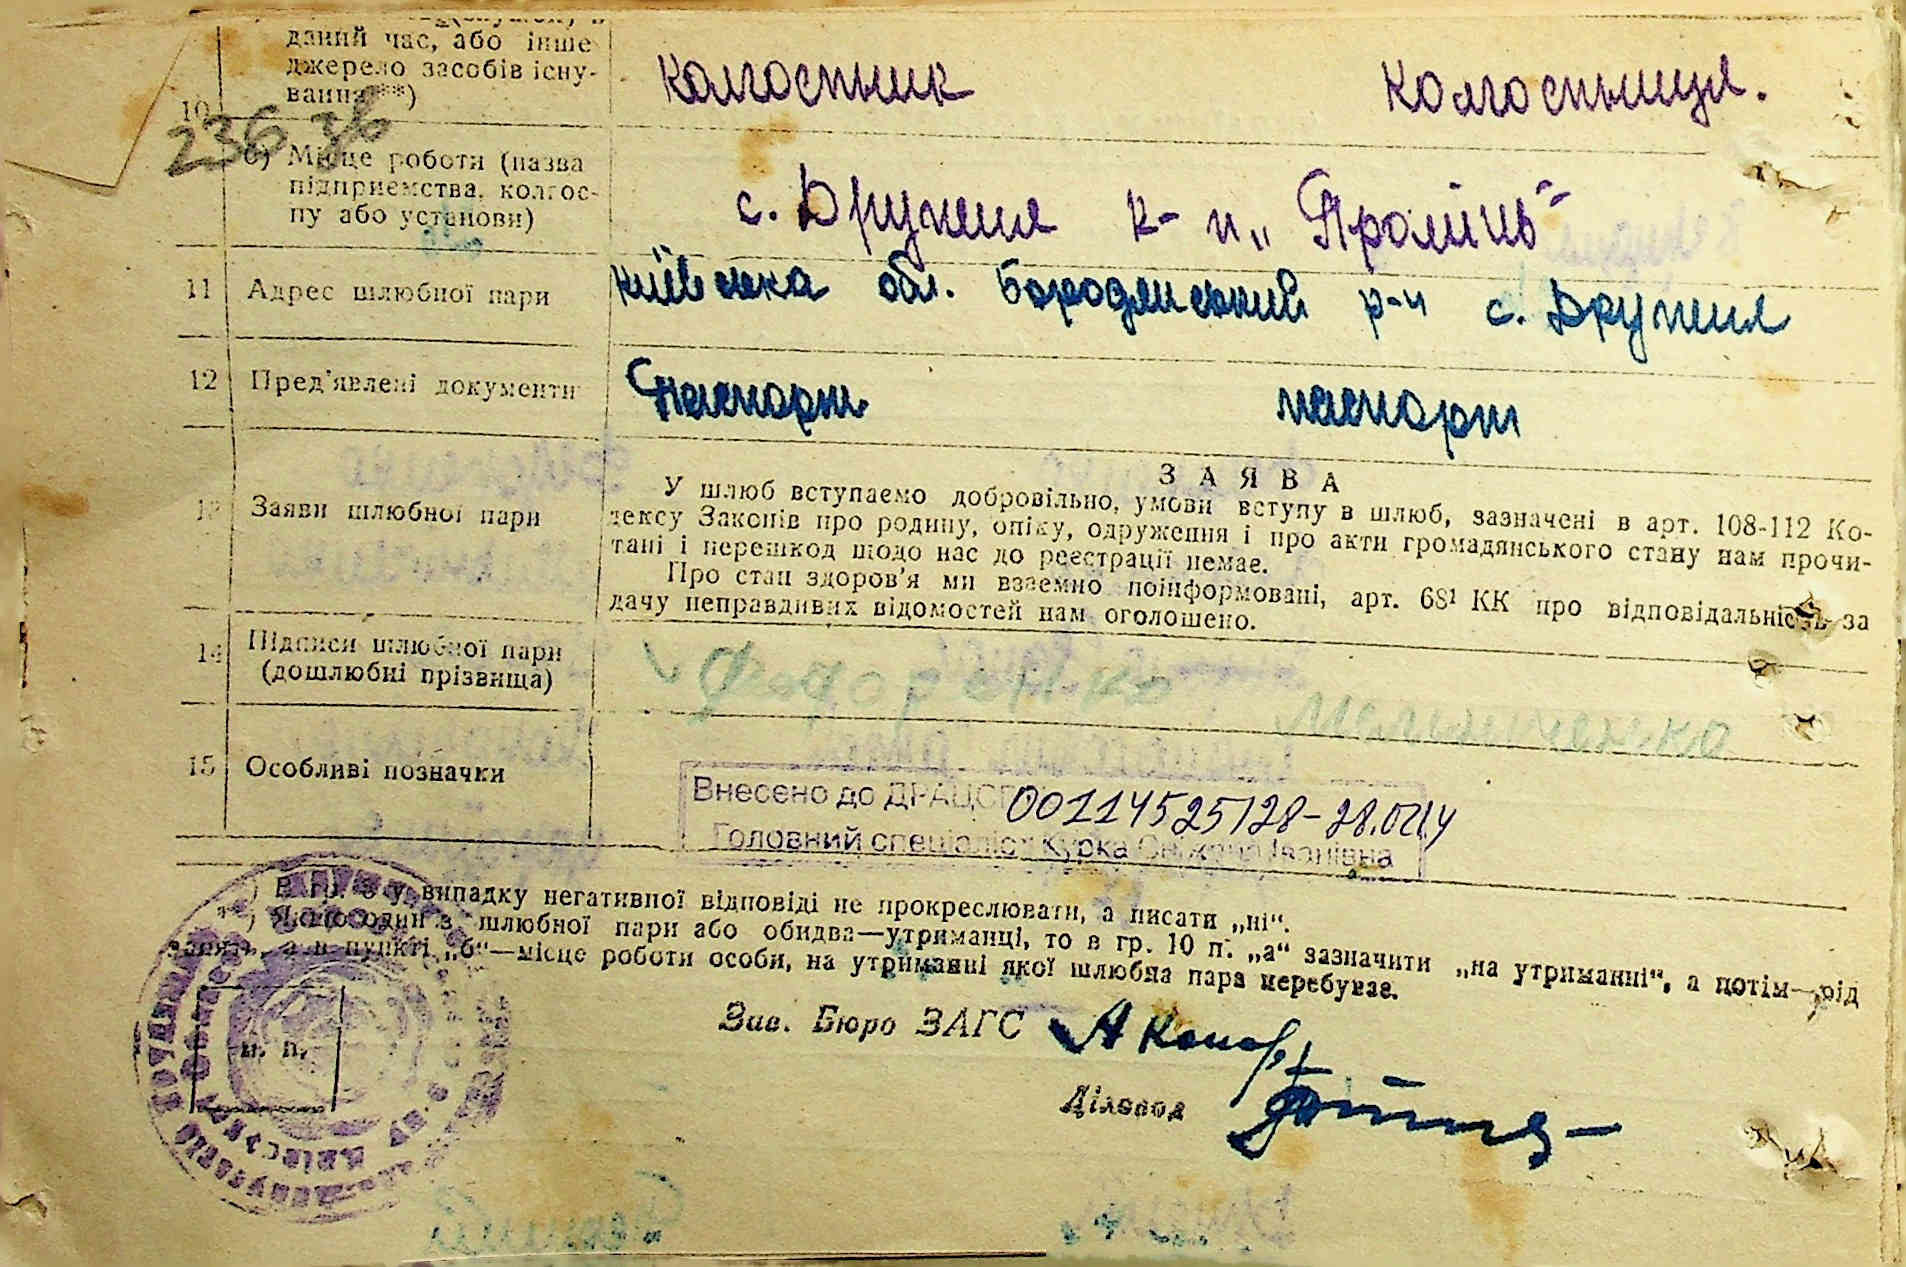 даний час, або інше
джерело засобів існу-
вання **)
колгоспник колгоспниця.
10
236 36
б) Місце роботи (назва
підприємства, колгос-
пу або установи)
с. Дружня к-п „Промінь“
11 Адрес шлюбної пари
Київська обл. Бородянський р-н с. Дружня
12 Пред'явлені документи
паспорт паспорт
13 Заяви шлюбної пари
ЗАЯВА
У шлюб вступаємо добровільно, умови вступу в шлюб, зазначені в арт. 108-112 Ко-
дексу Законів про родину, опіку, одруження і про акти громадянського стану нам прочи-
тані і перешкод щодо нас до реєстрації немає.
Про стан здоров'я ми взаємно поінформовані, арт. 68¹ КК про відповідальність за
дачу неправдивих відомостей нам оголошено.
14 Підписи шлюбної пари
(дошлюбні прізвища)
Федоренко Мельниченко
15 Особливі позначки
Внесено до ДРАЦСГ 00114525128-28.07.14
Головний спеціаліст Курка Сніжана Іванівна
*) В гр. 8 у випадку негативної відповіді не прокреслювати, а писати „ні“.
**) Якщо один з шлюбної пари або обидва—утриманці, то в гр. 10 п. „а“ зазначити „на утриманні“, а потім—рід
занять, а в пункті „б“—місце роботи особи, на утриманні якої шлюбна пара перебуває.
Зав. Бюро ЗАГС
м. п.
Діловод